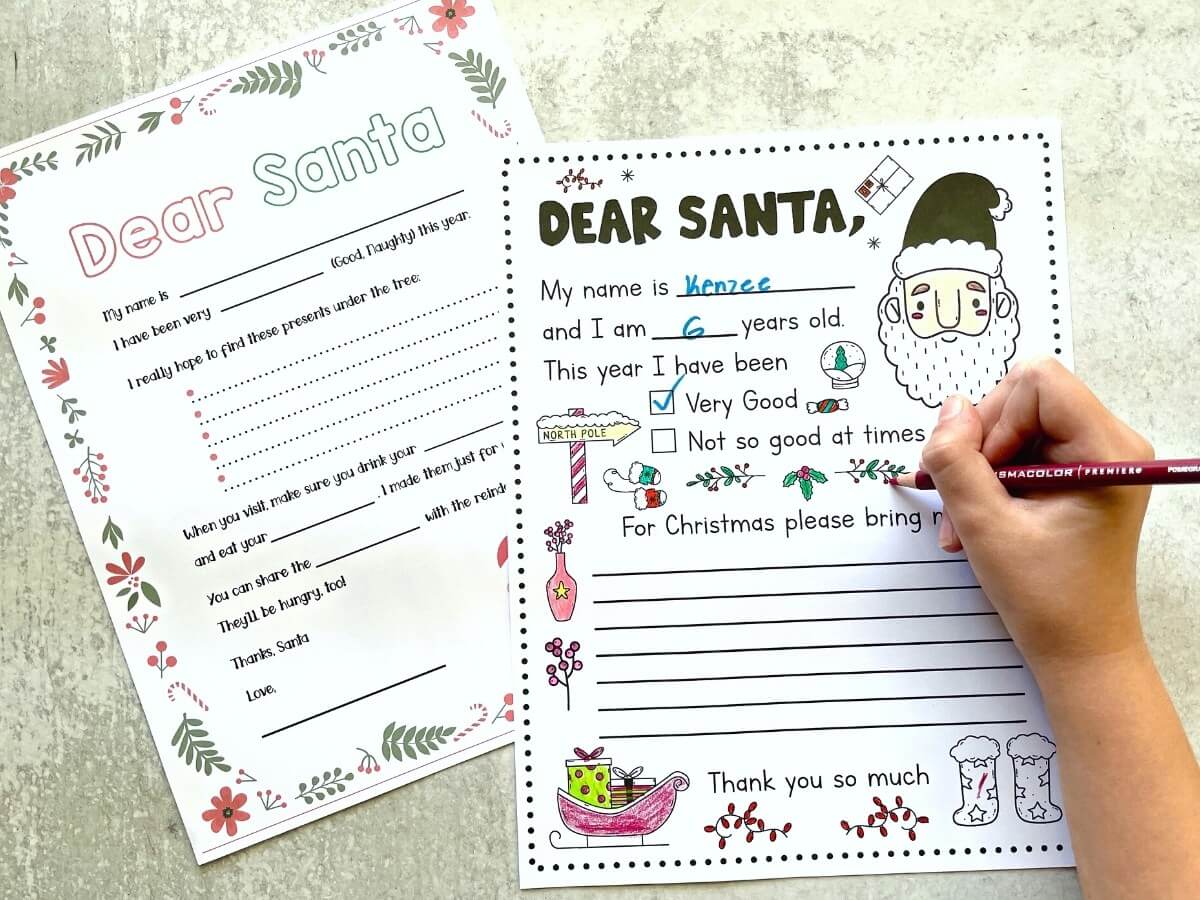 Dear Santa
My name is
I have been very (Good, Naughty) this year.
I really hope to find these presents under the tree:
When you visit, make sure you drink your
and eat your . I made them just for
You can share the with the
They'll be hungry, too!
Thanks, Santa
Love,
DEAR SANTA,
My name is Kenzee
and I am 6 years old.
This year I have been
Very Good
NORTH POLE
Not so good at times
PREMIER
For Christmas please bring
Thank you so much